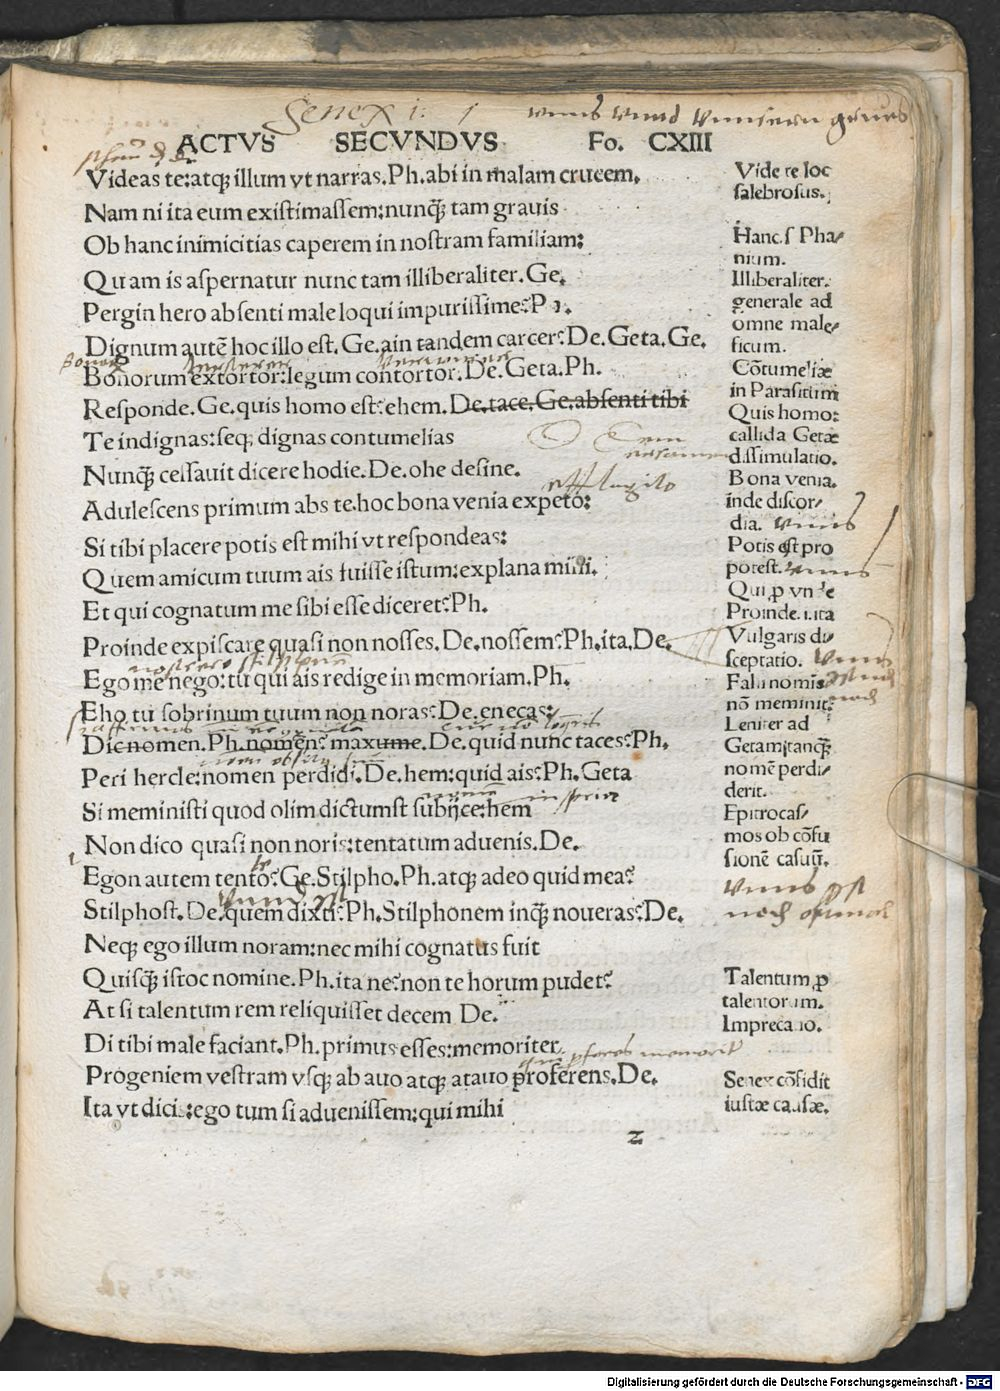 Senex
ACTVS SECVNDVS Fo. CXIII
Videas te:atq; illum vt narras.Ph.abi in malam crucem.
Nam ni ita eum existimassem:nunq̃ tam grauis
Ob hanc inimicitias caperem in nostram familiam:
Quam is aspernatur nunc tam illiberaliter.Ge.
Pergin hero absenti male loqui impurissime?
Dignum autẽ hoc illo est.Ge.ain tandem carcer?De.Geta.Ge.
Bonorum extortor:legum contortor.De.Geta.Ph.
Responde.Ge.quis homo est?ehem.De.tace.Ge.absenti tibi
Te indignas:seq; dignas contumelias
Nunq̃ cessauit dicere hodie.De.ohe desine.
efflagito
Adulescens primum abs te.hoc bona venia expeto:
Si tibi placere potis est mihi vt respondeas:
Quem amicum tuum ais fuisse istum:explana mihi.
Et qui cognatum me sibi esse diceret?Ph.
Proinde expiscare quasi non nosses.De.nossem?Ph.ita.De.
Ego me nego:tu qui ais redige in memoriam.Ph.
Eho tu sobrinum tuum non noras?De.enecas:
Dic nomen.Ph.nomen?maxume.De.quid nunc taces?Ph.
Peri hercle:nomen perdidi.De.hem:quid ais?Ph.Geta
Si meministi quod olim dictumst subijce:hem
Non dico quasi non noris:tentatum aduenis.De.
Egon autem tento?Ge.Stilpho.Ph.atq; adeo quid mea?
Stilphost.De.quem dixti?Ph.Stilphonem inq̃ noueras?De.
Neq; ego illum noram:nec mihi cognatus fuit
Quisq̃ istoc nomine.Ph.ita ne?non te horum pudet?
At si talentum rem reliquisset decem De.
Di tibi male faciant.Ph.primus esses:memoriter
Progeniem vestram vsq; ab auo atq; atauo proferens.De.
Ita vt dicis:ego tum si aduenissem:qui mihi
z
Vide te loc
salebrosus.
Hanc.s Pha/
nium.
Illiberaliter.
generale ad
omne male/
ficum.
Cõtumeliæ
in Parasitum
Quis homo:
callida Getæ
dissimulatio.
Bona venia.
inde discor/
dia.
Potis est pro
potest.
Qui ꝓ vnde
Proinde.i.ita
Vulgaris di/
sceptatio.
Falsi nomĩs
nõ meminit:
Leniter ad
Getam;tanq̃
nomẽ perdi/
derit.
Epitrocas/
mos ob cõfu
sionẽ casuũ.
Talentum ꝓ
talentorum.
Imprecatio.
Senex cõfidit
iustæ causæ.
Digitalisierung gefördert durch die Deutsche Forschungsgemeinschaft - DFG